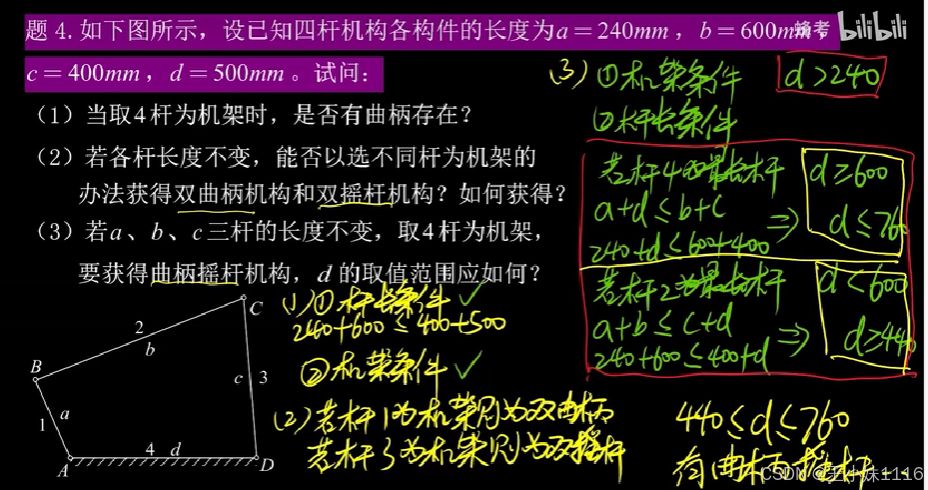 题 4. 如下图所示，设已知四杆机构各构件的长度为a＝240mm，b＝600mm，
c＝400mm，d＝500mm。试问：
（1）当取4杆为机架时，是否有曲柄存在？
（2）若各杆长度不变，能否以选不同杆为机架的
办法获得双曲柄机构和双摇杆机构？如何获得？
（3）若a、b、c三杆的长度不变，取4杆为机架，
要获得曲柄摇杆机构，d 的取值范围应如何？
bilibili
(3) ①机架条件 d>240
②杆长条件
若杆4为最长杆 d≥600
a+d≤b+c ⇒ d≤760
240+d≤600+400
若杆2为最长杆 d<600
a+b≤c+d ⇒ d≥440
240+600≤400+d
440≤d≤760
有曲柄摇杆
(1) ①杆长条件 ✓
240+600≤400+500
②机架条件 ✓
(2) 若杆1为机架则为双曲柄
若杆3为机架则为双摇杆
B 2 b C
1 a c 3
A 4 d D
CSDN @王小妹1116